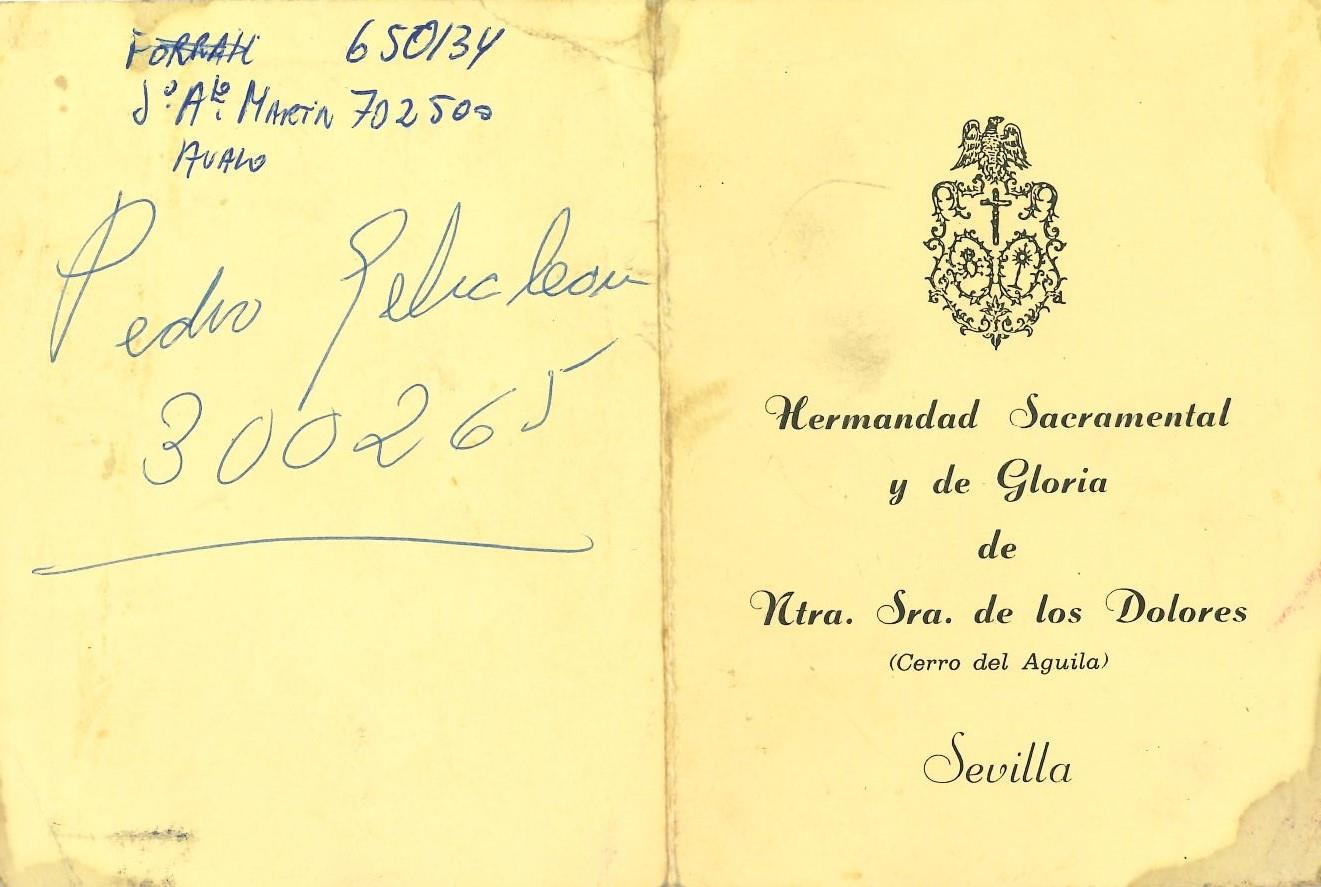 650134
Jº. Ato. MARTIN 702500
AVALO
Pedro
300265
Hermandad Sacramental
y de Gloria
de
Ntra. Sra. de los Dolores
(Cerro del Aguila)
Sevilla